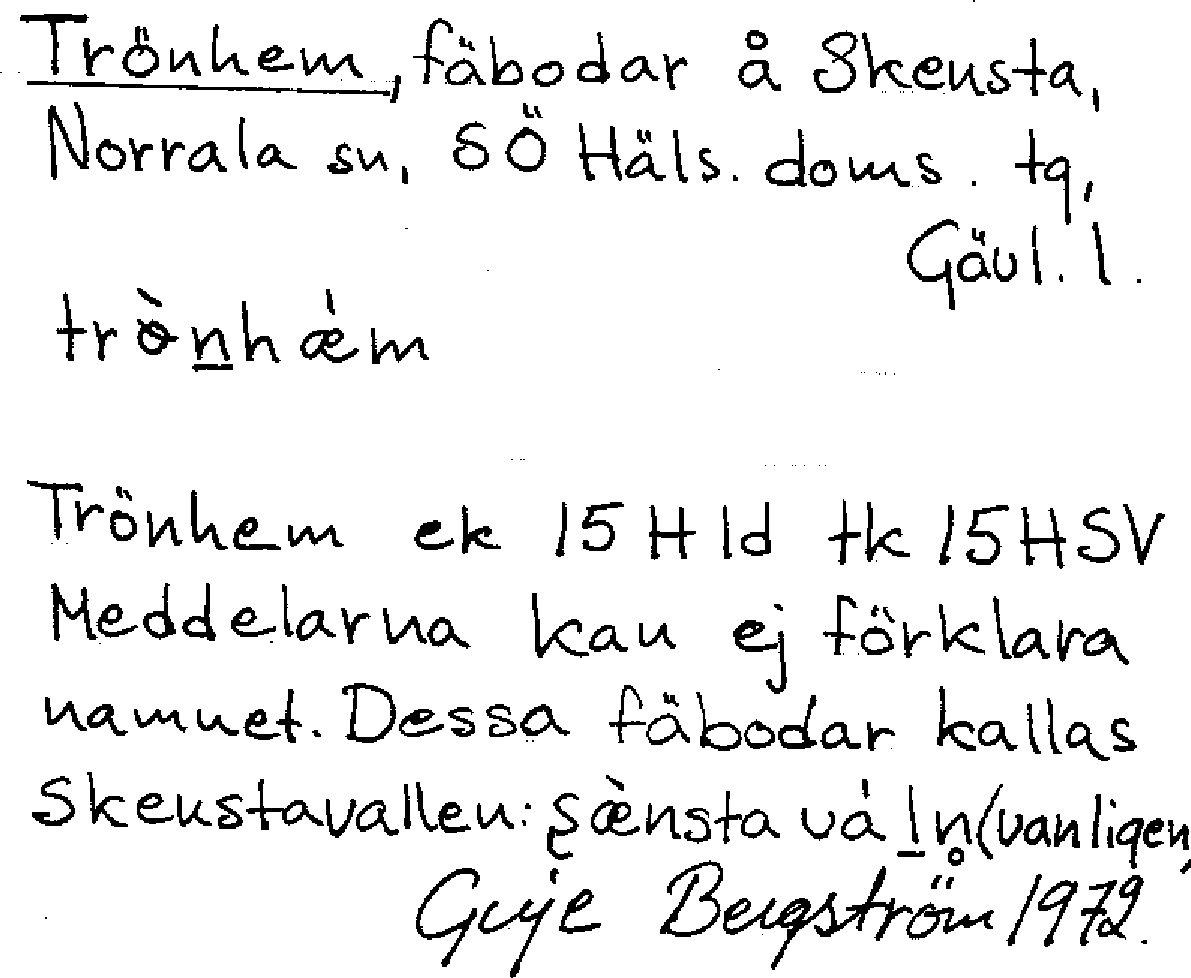 Trönhem, fäbodar å Skensta,
Norrala sn, SÖ Häls. doms. tg,
Gävl. l.
trɵ̀n̲hǽm
Trönhem ek 15 H 1d tk 15 H SV
Meddelarna kan ej förklara
namnet. Dessa fäbodar kallas
Skenstavallen: ʂæ̀nsta vá l̲n̥ (vanligen,
Bergström 1972.